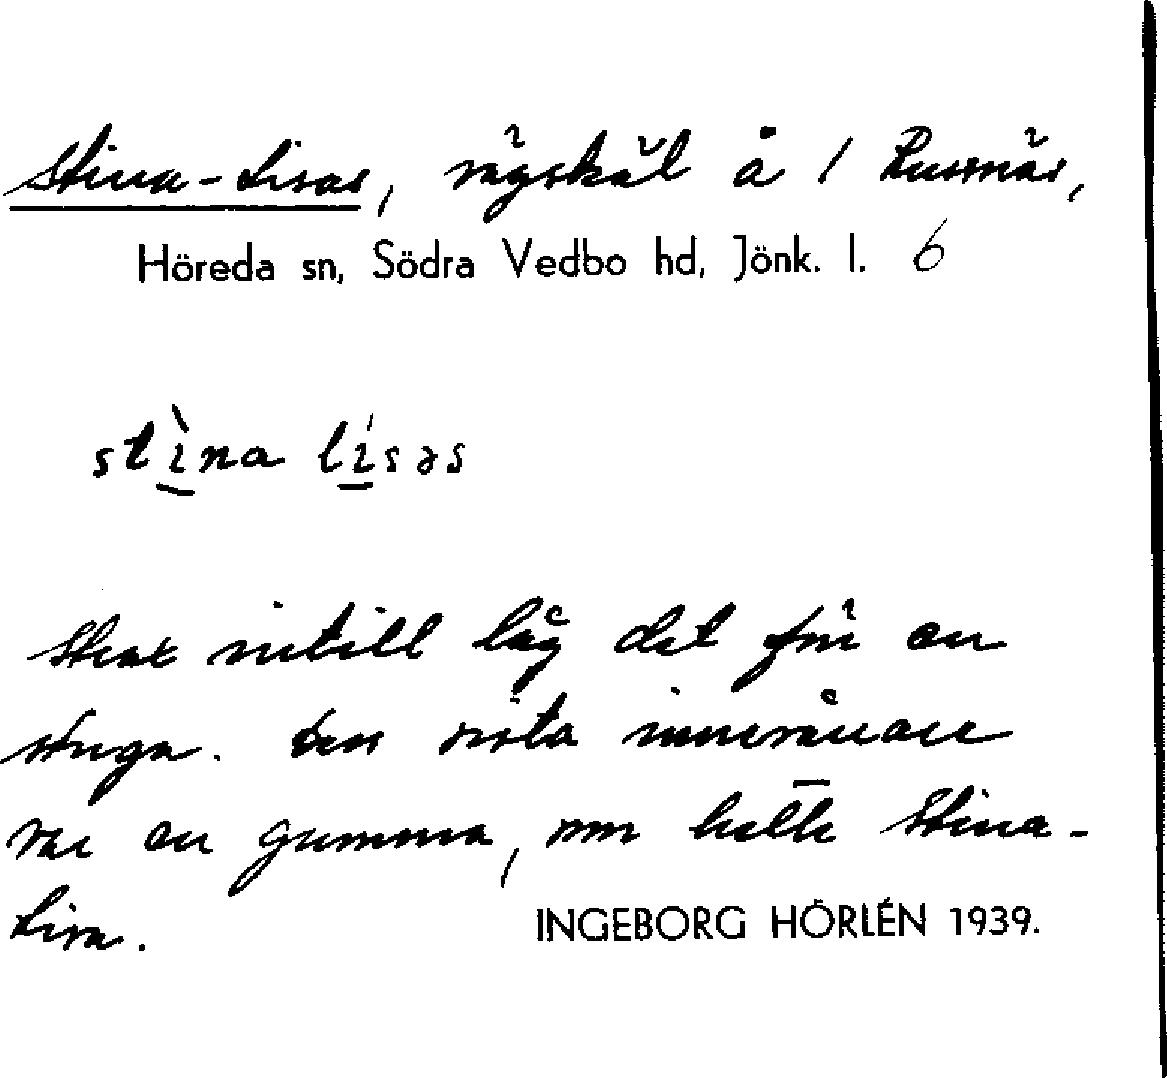 Stina-Lisas, vägskäl å 1 Russnäs,
Höreda sn, Södra Vedbo hd, Jönk. l. 6
stina lisəs
Strax intill låg det förr en
stuga. Den sista innevånare
var en gumma, som hette Stina-
Lisa.
INGEBORG HÖRLÉN 1939.